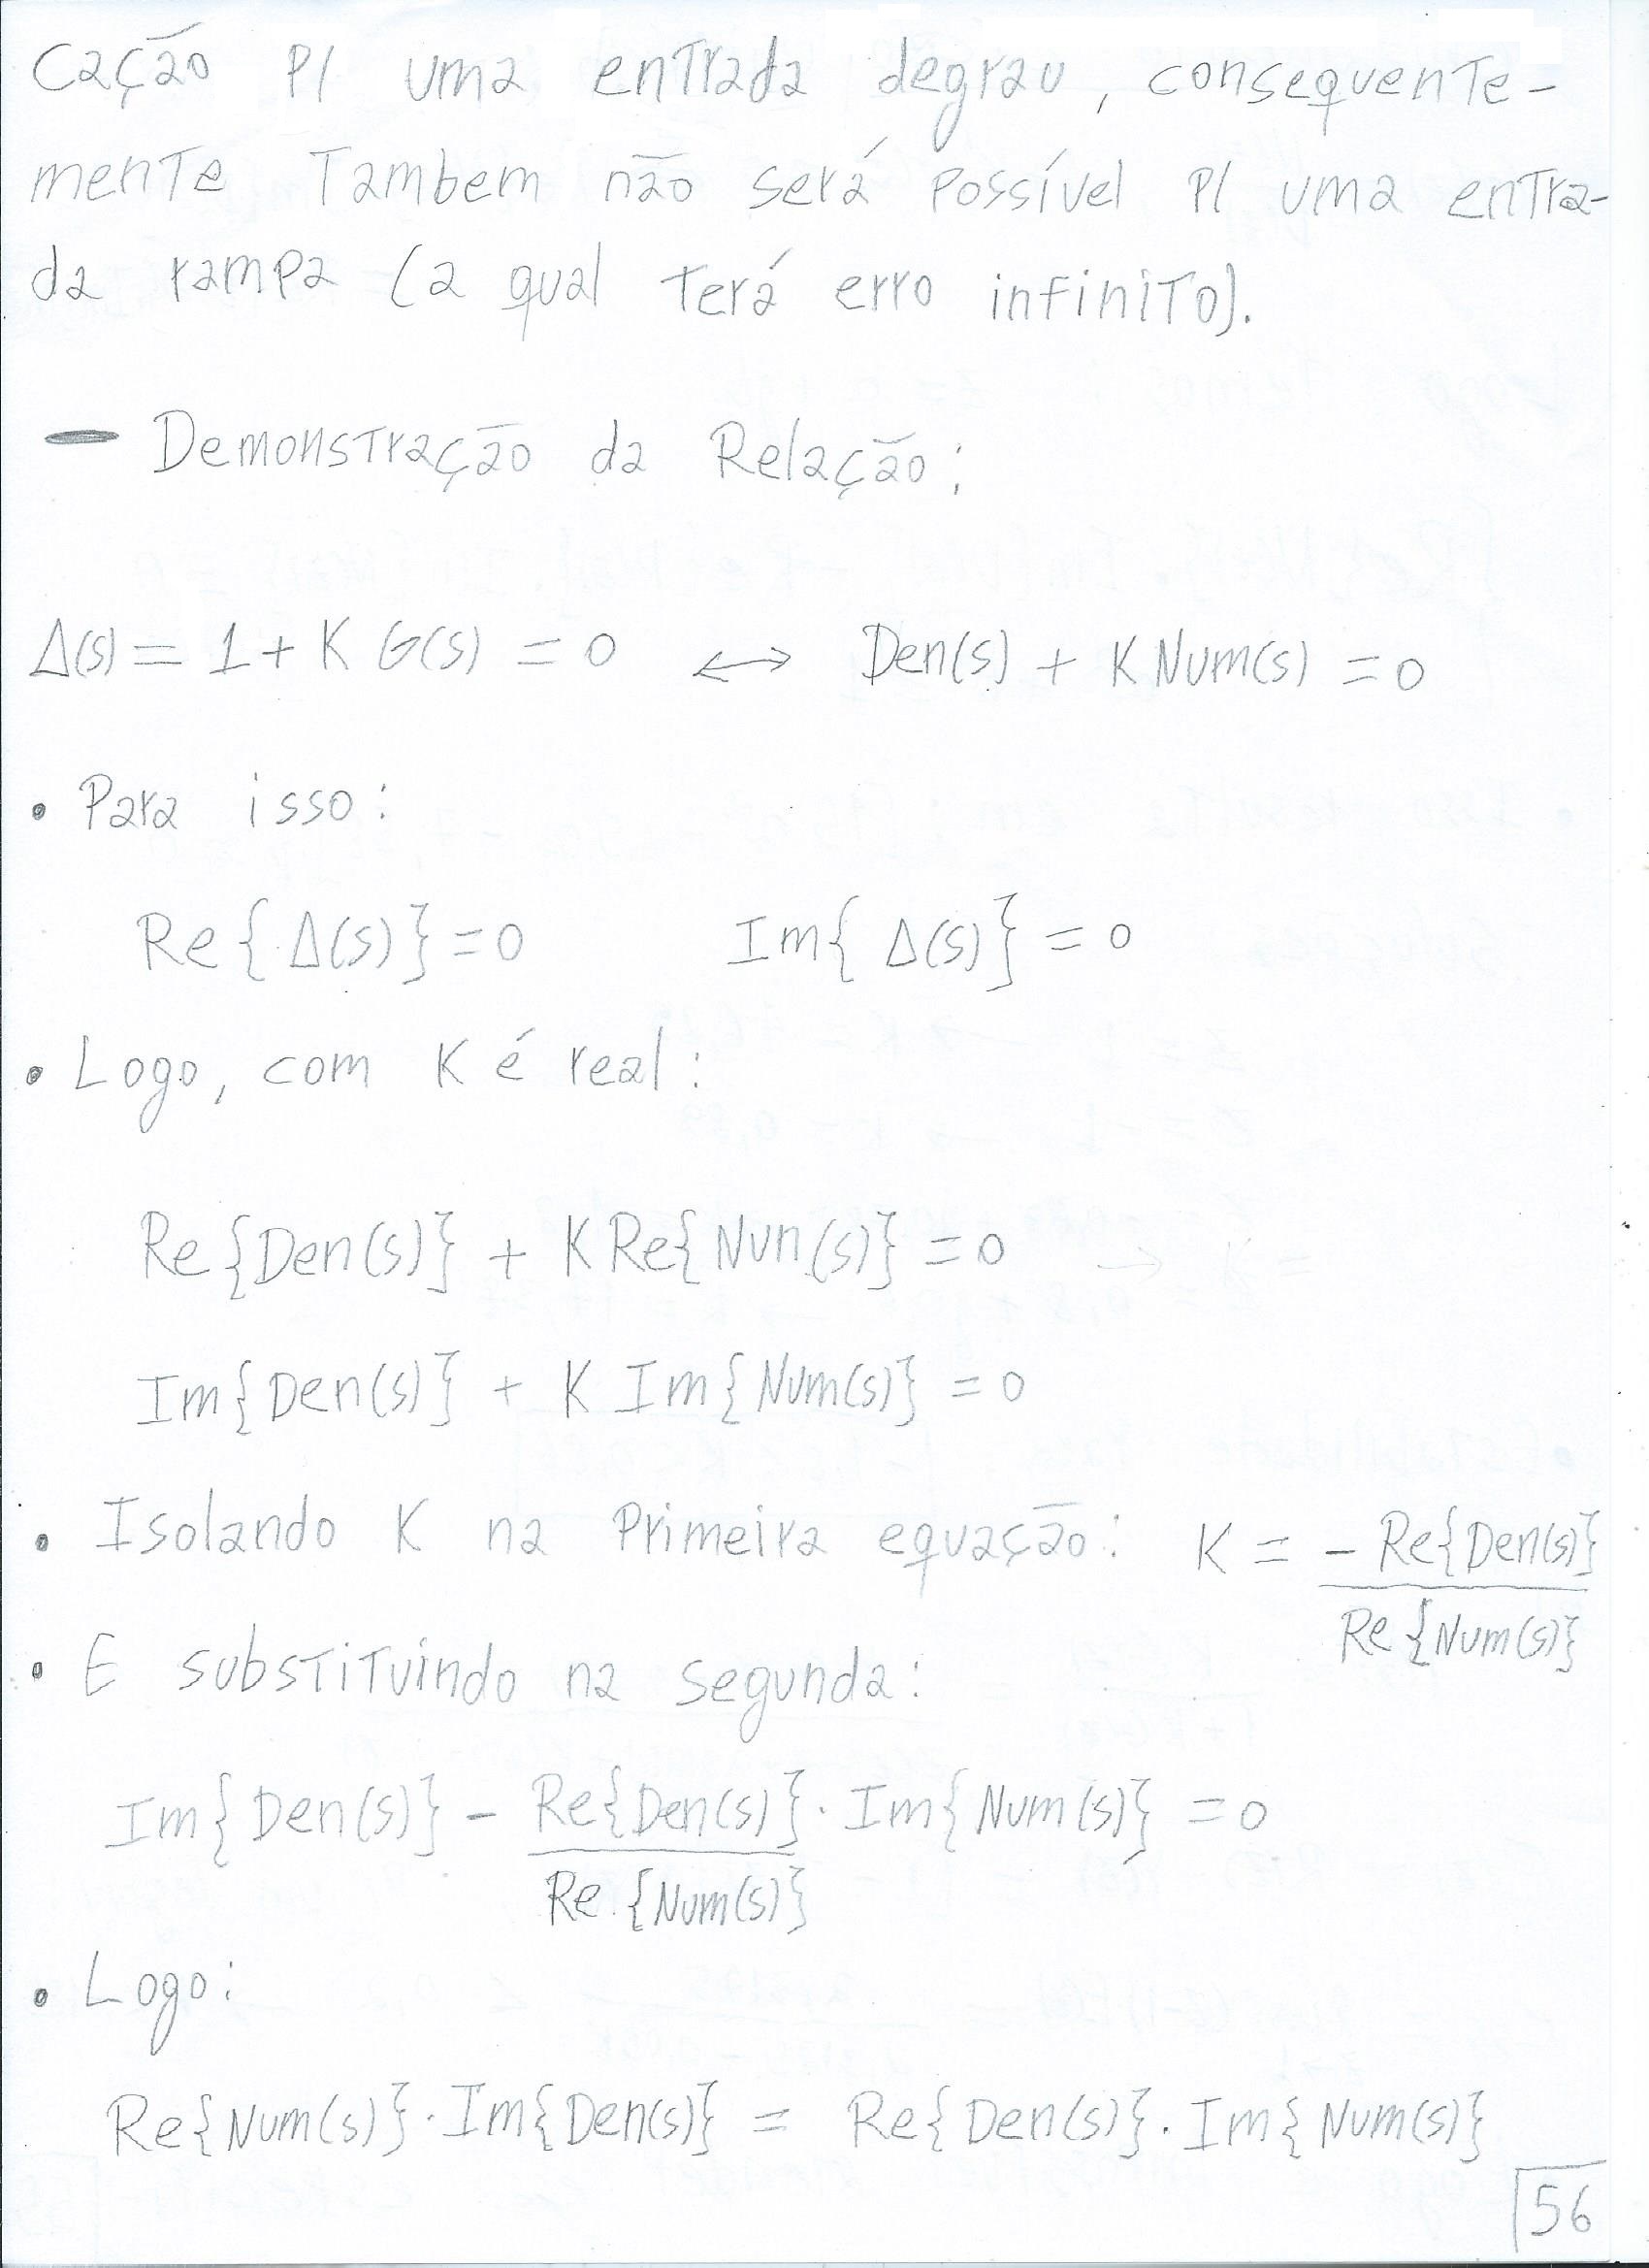 cação p/ uma entrada degrau, consequente-
mente Tambem não será possível p/ uma entra-
da rampa (a qual terá erro infinito).
— Demonstração da Relação:
Δ(s) = 1 + K G(s) = 0 ↔ Den(s) + K Num(s) = 0
• Para isso:
Re{Δ(s)} = 0 Im{Δ(s)} = 0
• Logo, com K é real:
Re{Den(s)} + K Re{Nun(s)} = 0
Im{Den(s)} + K Im{Num(s)} = 0
• Isolando K na Primeira equação: K = - Re{Den(s)} / Re{Num(s)}
• E substituindo na segunda:
Im{Den(s)} - Re{Den(s)} / Re{Num(s)} · Im{Num(s)} = 0
• Logo:
Re{Num(s)} · Im{Den(s)} = Re{Den(s)} · Im{Num(s)}
56